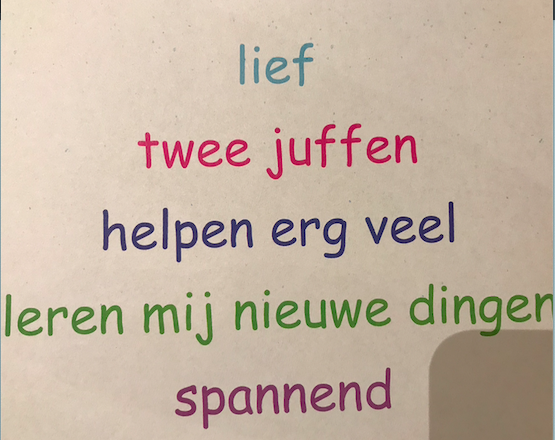 lief
twee juffen
helpen erg veel
leren mij nieuwe dingen
spannend